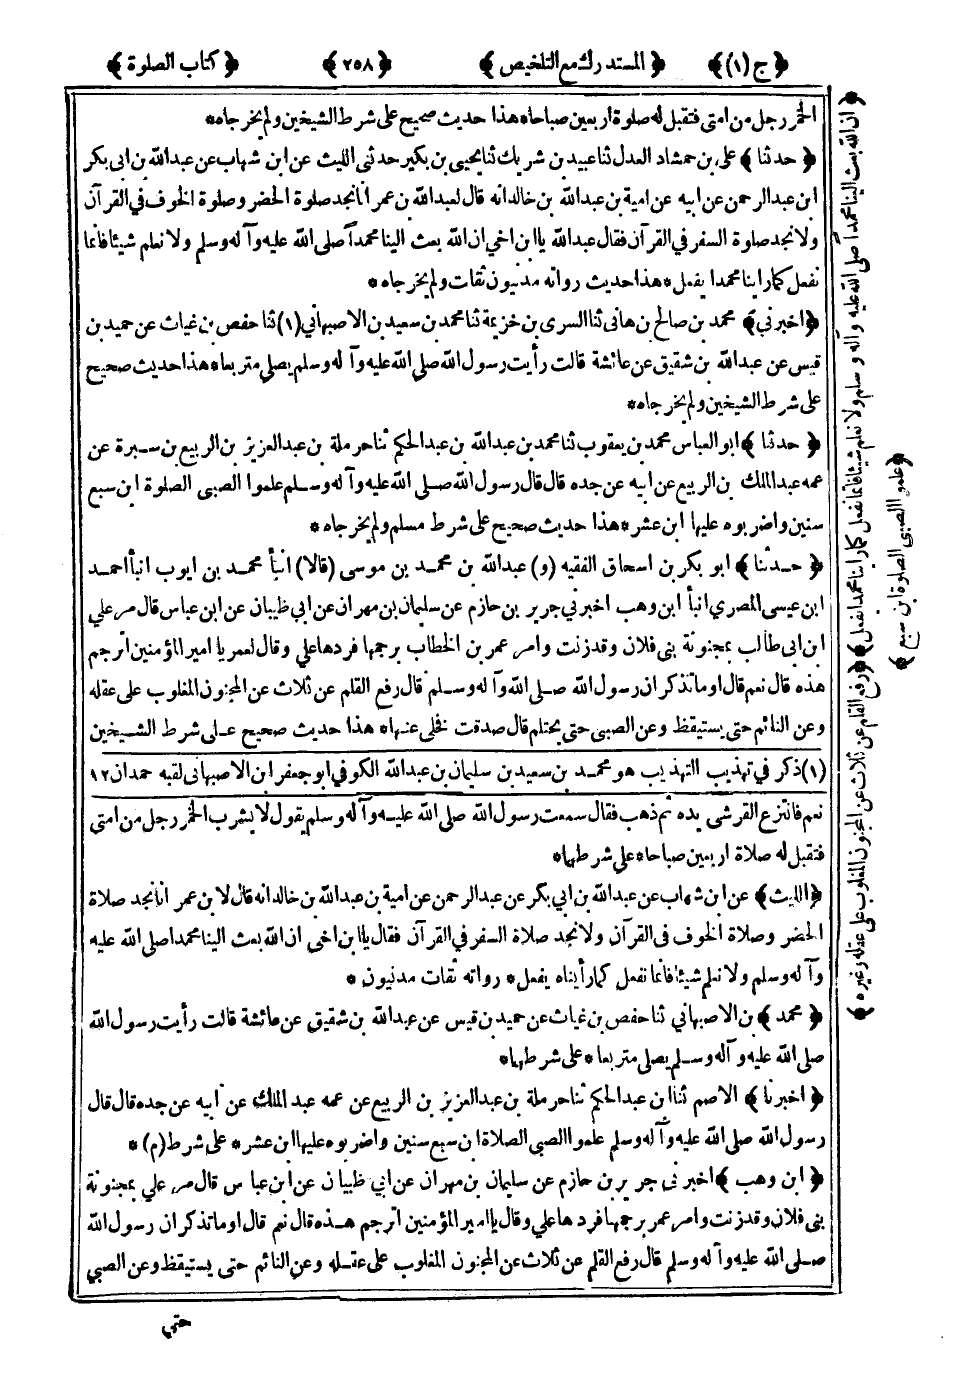 ﴿ ج (١) ﴾ ﴿ المستدرك مع التلخيص ﴾ ﴿ ٢٥٨ ﴾ ﴿ كتاب الصلوة ﴾
الخمر رجل من امتى فتقبل له صلوة اربعين صباحا * هذا حديث صحيح على شرط الشيخين ولم يخرجاه *
﴿ حدثنا ﴾ على بن حمشاد العدل ثنا عبيد بن شريك ثنا يحيى بن بكير حدثني الليث عن ابن شهاب عن عبدالله بن ابى بكر
ابن عبد الرحمن عن ابيه عن امية بن عبدالله بن خالد انه قال لعبدالله بن عمر انا نجد صلوة الحضر وصلوة الخوف في القرآن
ولا نجد صلوة السفر في القرآن فقال عبدالله يا ابن اخي ان الله بعث الينا محمداً صلى الله عليه وآله وسلم ولا نعلم شيئا فانما
نفعل كما رأينا محمدا يفعل * هذا حديث رواته مدنيون ثقات ولم يخرجاه *
﴿ اخبرني ﴾ محمد بن صالح بن هانى ثنا السرى بن خزيمة ثنا محمد بن سعيد بن الاصبهاني (١) ثنا حفص بن غياث عن حميد بن
قيس عن عبدالله بن شقيق عن عائشة قالت رأيت رسول الله صلى الله عليه وآله وسلم يصلى متربعا * هذا حديث صحيح
على شرط الشيخين ولم يخرجاه *
﴿ حدثنا ﴾ ابو العباس محمد بن يعقوب ثنا محمد بن عبدالله بن عبد الحكم ثنا حرملة بن عبد العزيز بن الربيع بن سبرة عن
عمه عبد الملك بن الربيع عن ابيه عن جده قال قال رسول الله صلى الله عليه وآله وسلم علموا الصبى الصلوة ابن سبع
سنين واضربوه عليها ابن عشر * هذا حديث صحيح على شرط مسلم ولم يخرجاه *
﴿ حدثنا ﴾ ابو بكر بن اسحاق الفقيه (و) عبدالله بن محمد بن موسى (قالا) انبأ محمد بن ايوب انبأ احمد
ابن عيسى المصري انبأ ابن وهب اخبرني جرير بن حازم عن سليمان بن مهران عن ابي ظبيان عن ابن عباس قال مر علي
ابن ابى طالب بمجنونة بنى فلان وقد زنت وامر عمر بن الخطاب برجمها فردها علي وقال لعمر يا امير المؤمنين اترجم
هذه قال نعم قال اوما تذكر ان رسول الله صلى الله عليه وآله وسلم قال رفع القلم عن ثلاث عن المجنون المغلوب على عقله
وعن النائم حتى يستيقظ وعن الصبى حتى يحتلم قال صدقت فخلى عنها * هذا حديث صحيح على شرط الشيخين
(١) ذكر في تهذيب التهذيب هو محمد بن سعيد بن سليمان بن عبدالله الكوفي ابو جعفر ابن الاصبهانى لقبه حمدان ١٢
نعم فانتزع القرشي يده ثم ذهب فقال سمعت رسول الله صلى الله عليه وآله وسلم يقول لا يشرب الخمر رجل من امتى
فتقبل له صلاة اربعين صباحا * على شرطهما *
﴿ الليث ﴾ عن ابن شهاب عن عبدالله بن ابي بكر عن عبد الرحمن عن امية بن عبدالله بن خالد انه قال لابن عمر انا نجد صلاة
الحضر وصلاة الخوف فى القرآن ولا نجد صلاة السفر في القرآن فقال يا ابن اخى ان الله بعث الينا محمدا صلى الله عليه
وآله وسلم ولا نعلم شيئا فانما نفعل كما رأيناه يفعل * رواته ثقات مدنيون *
﴿ محمد ﴾ بن الاصبهاني ثنا حفص بن غياث عن حميد بن قيس عن عبدالله بن شقيق عن عائشة قالت رأيت رسول الله
صلى الله عليه وآله وسلم يصلى متربعا * على شرطهما *
﴿ اخبرنا ﴾ الاصم ثنا ابن عبد الحكم ثنا حرملة بن عبد العزيز بن الربيع عن عمه عبد الملك عن ابيه عن جده قال قال
رسول الله صلى الله عليه وآله وسلم علموا الصبى الصلاة ابن سبع سنين واضربوه عليها ابن عشر * على شرط (م) *
﴿ ابن وهب ﴾ اخبرنى جرير بن حازم عن سليمان بن مهران عن ابي ظبيان عن ابن عباس قال مر علي بمجنونة
بنى فلان وقد زنت وامر عمر برجمها فردها علي وقال يا امير المؤمنين اترجم هذه قال نعم قال اوما تذكر ان رسول الله
صلى الله عليه وآله وسلم قال رفع القلم عن ثلاث عن المجنون المغلوب على عقله وعن النائم حتى يستيقظ وعن الصبي
حتى
﴿ ان الله بعث الينا محمدا صلى الله عليه وآله وسلم ولا نعلم شيئا فانما نفعل كما رأينا محمدا يفعل ﴾ ﴿ رفع القلم عن ثلاث عن المجنون المغلوب على عقله وغيره ﴾
﴿ علموا الصبى الصلوة ابن سبع ﴾